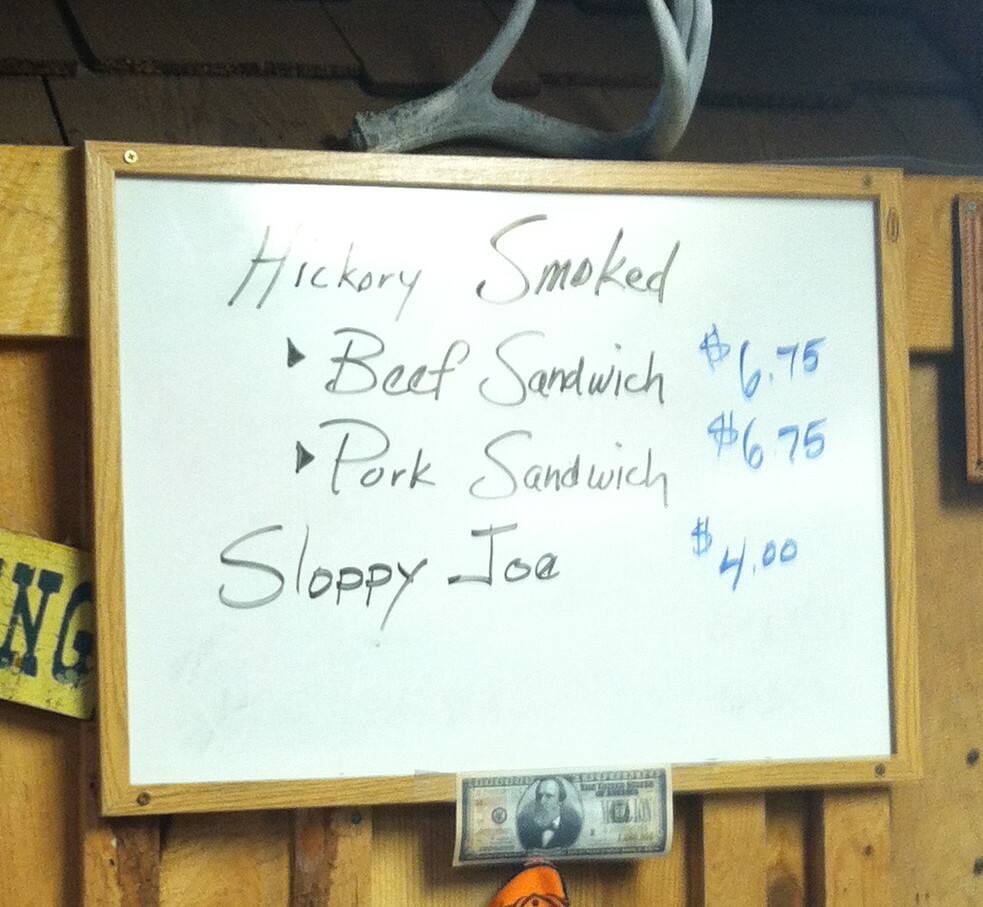 Hickory Smoked
Beef Sandwich $6.75
Pork Sandwich $6.75
Sloppy Joe $4.00
NG